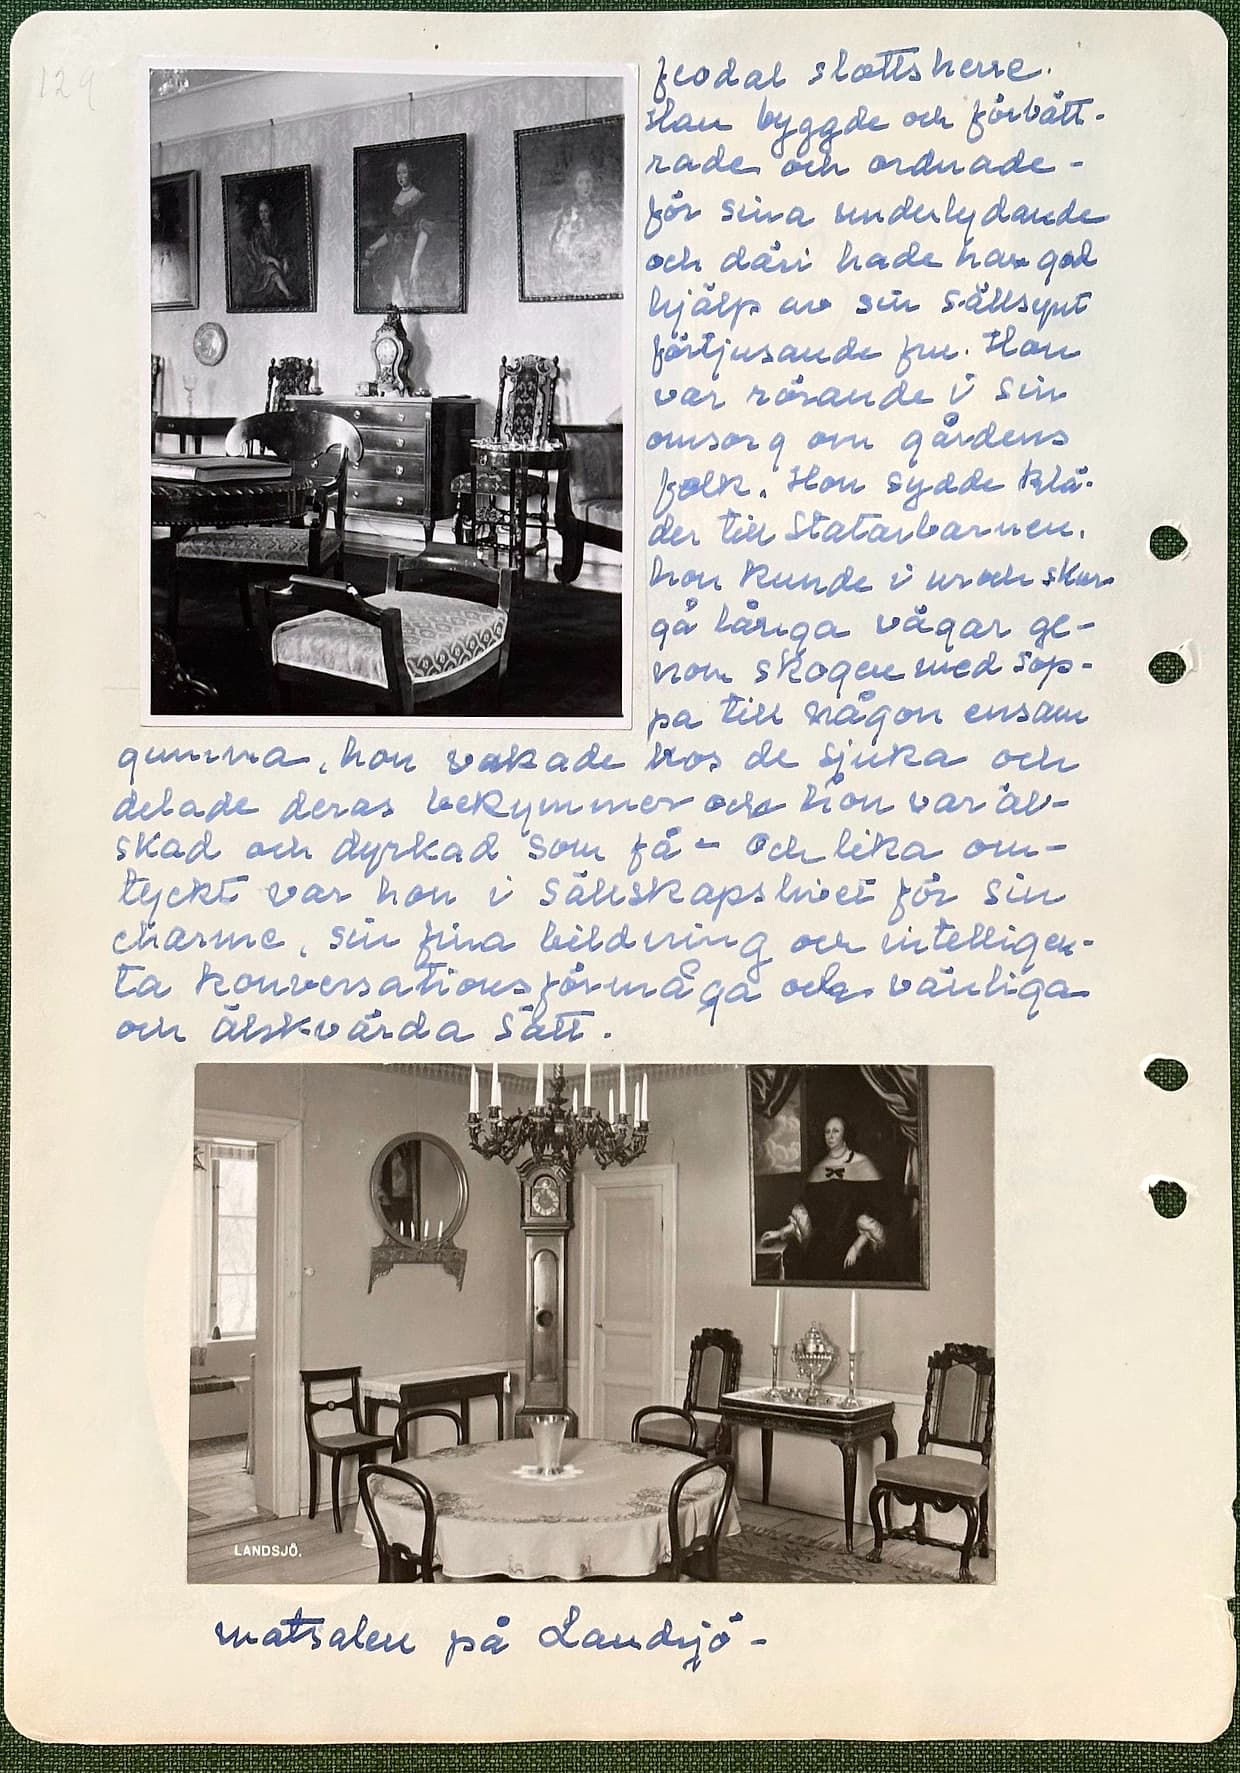 129
feodal slottsherre.
Han byggde och förbätt-
rade och ordnade -
för sina underlydande
och däri hade han god
hjälp av sin sällsynt
förtjusande fru. Hon
var rörande i sin
omsorg om gårdens
folk. Hon sydde klä-
der till statarbarnen.
hon kunde i ur och skur
gå långa vägar ge-
nom skogen med sop-
pa till någon ensam
gumma, hon vakade hos de sjuka och
delade deras bekymmer och hon var äl-
skad och dyrkad som få - och lika om-
tyckt var hon i sällskapslivet för sin
charme, sin fina bildning och intelligen-
ta konversationsförmåga och vänliga
och älskvärda sätt.
LANDSJÖ.
matsalen på Landsjö -